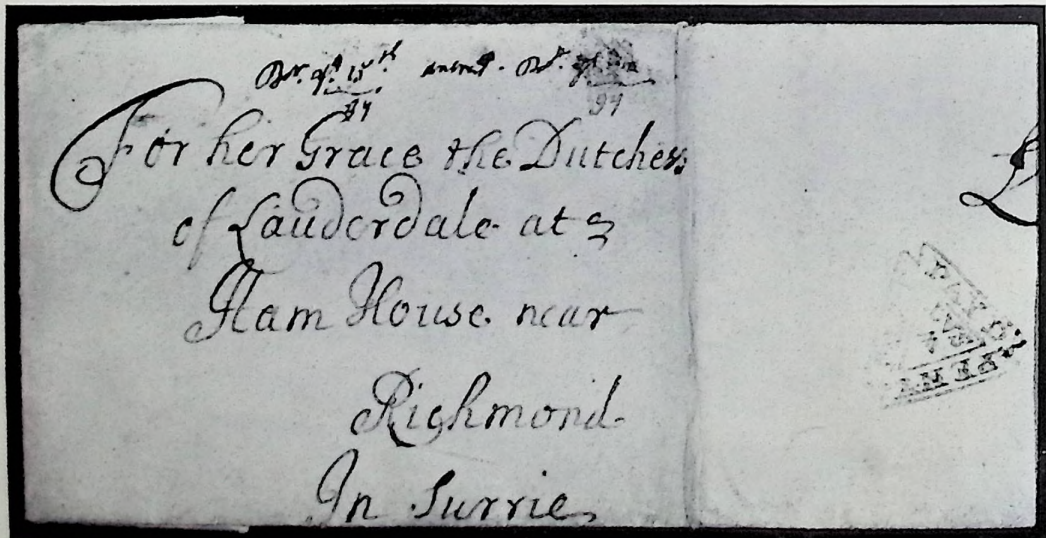 For her Grace the Dutches
of Lauderdale at
Ham House near
Richmond
In Surrie
PENY